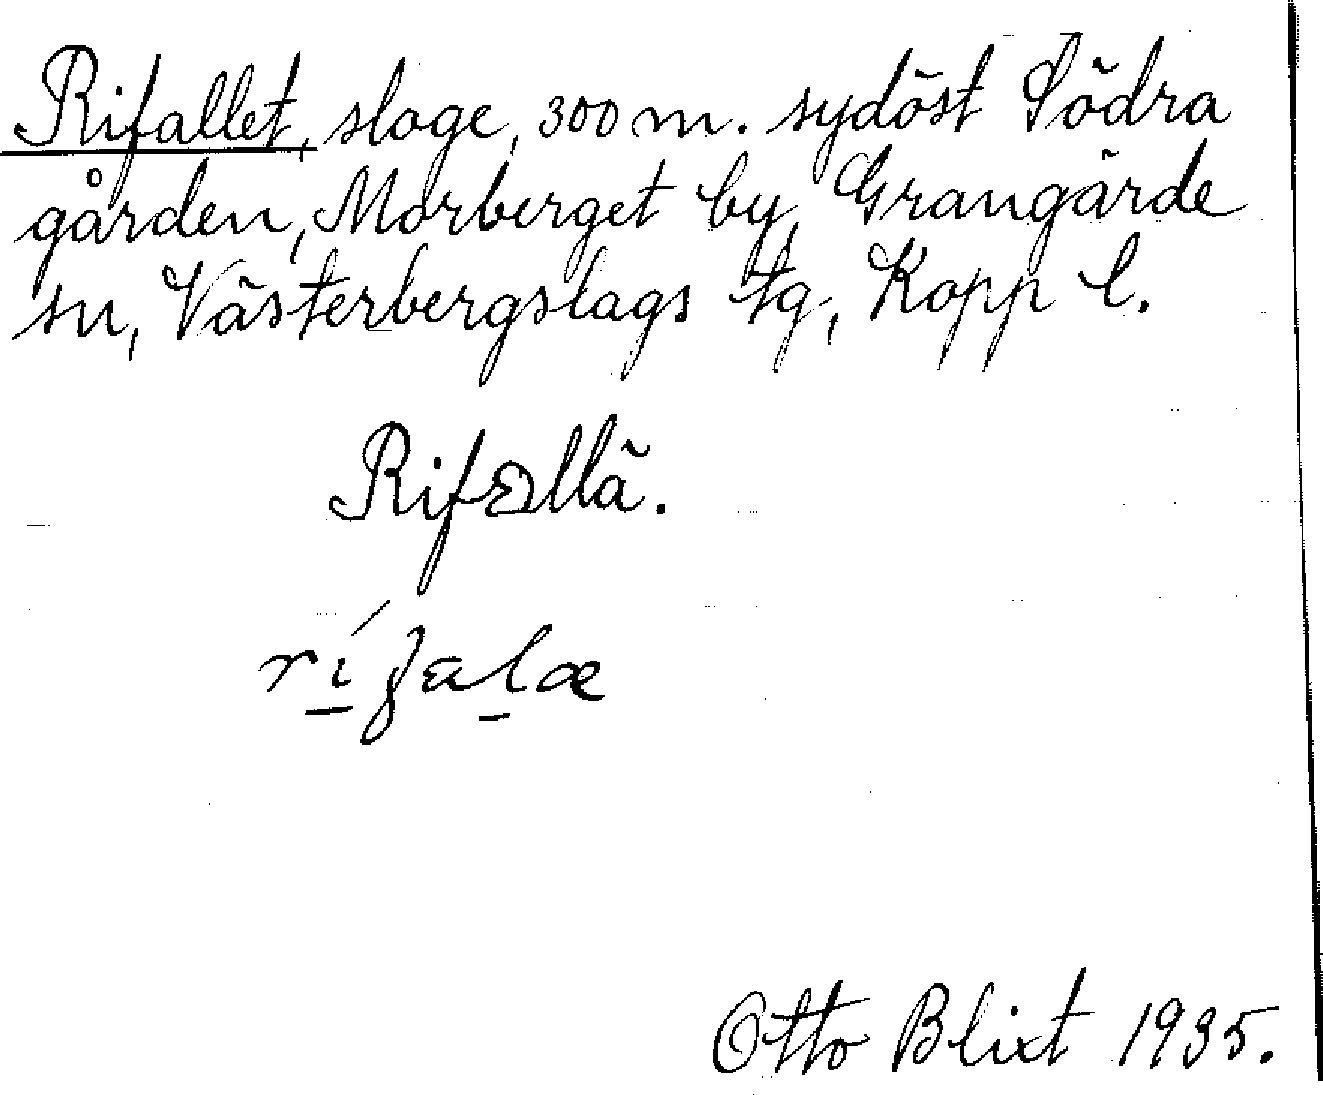 Rifallet, sloge, 300 m. sydöst Södra
gården, Morberget by, Grangärde
sn, Västerbergslags tg, Kopp l.
Rifallä.
Otto Blixt 1935.